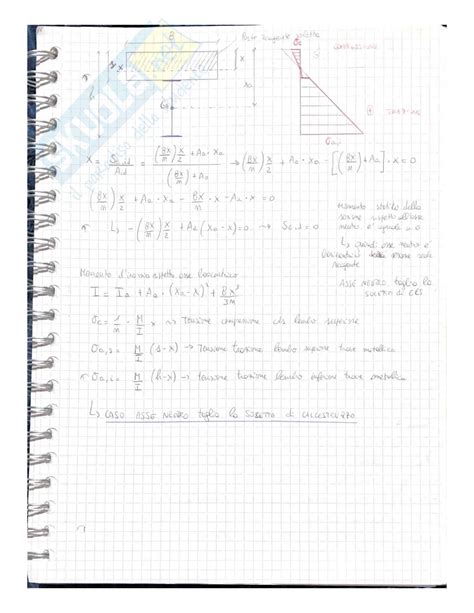 B
Parte reagente soletta
σc
⊖ COMPRESSIONE
x
h
G
⊕ TRAZIONE
SKUOLA.net
il paradiso dello studente
x = Sc,id / Aid = ((Bx/m) x/2 + Aa · xa) / ((Bx/m) + Aa) → (Bx/m) x/2 + Aa · xa - [(Bx/m) + Aa] · x = 0
(Bx/m) x/2 + Aa · xa - Bx/m · x - Aa x = 0
↳ - (Bx/m) x/2 + Aa (xa - x) = 0 → Sc,id = 0
Momento statico della
sezione rispetto all'asse
neutro è uguale = 0
↳ quindi asse neutro è
baricentrico della sezione
reagente
ASSE NEUTRO taglia la
soletta di CLS
Momento d'inerzia rispetto asse baricentrico
I = Ia + Aa · (xa - x)² + Bx³/3m
σc = 1/m · M/I x → Tensione compressione cls lembo superiore
σa,s = M/I (s-x) → Tensione trazione lembo superiore trave metallica
σa,i = M/I (h-x) → tensione trazione lembo inferiore trave metallica
↳ CASO ASSE NEUTRO taglia la SOLETTA di CALCESTRUZZO